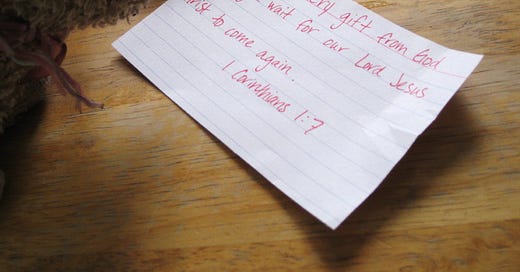 gift from God
wait for our Lord Jesus
to come again.
1 Corinthians 1:7